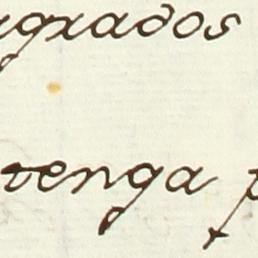 agrados
tenga p